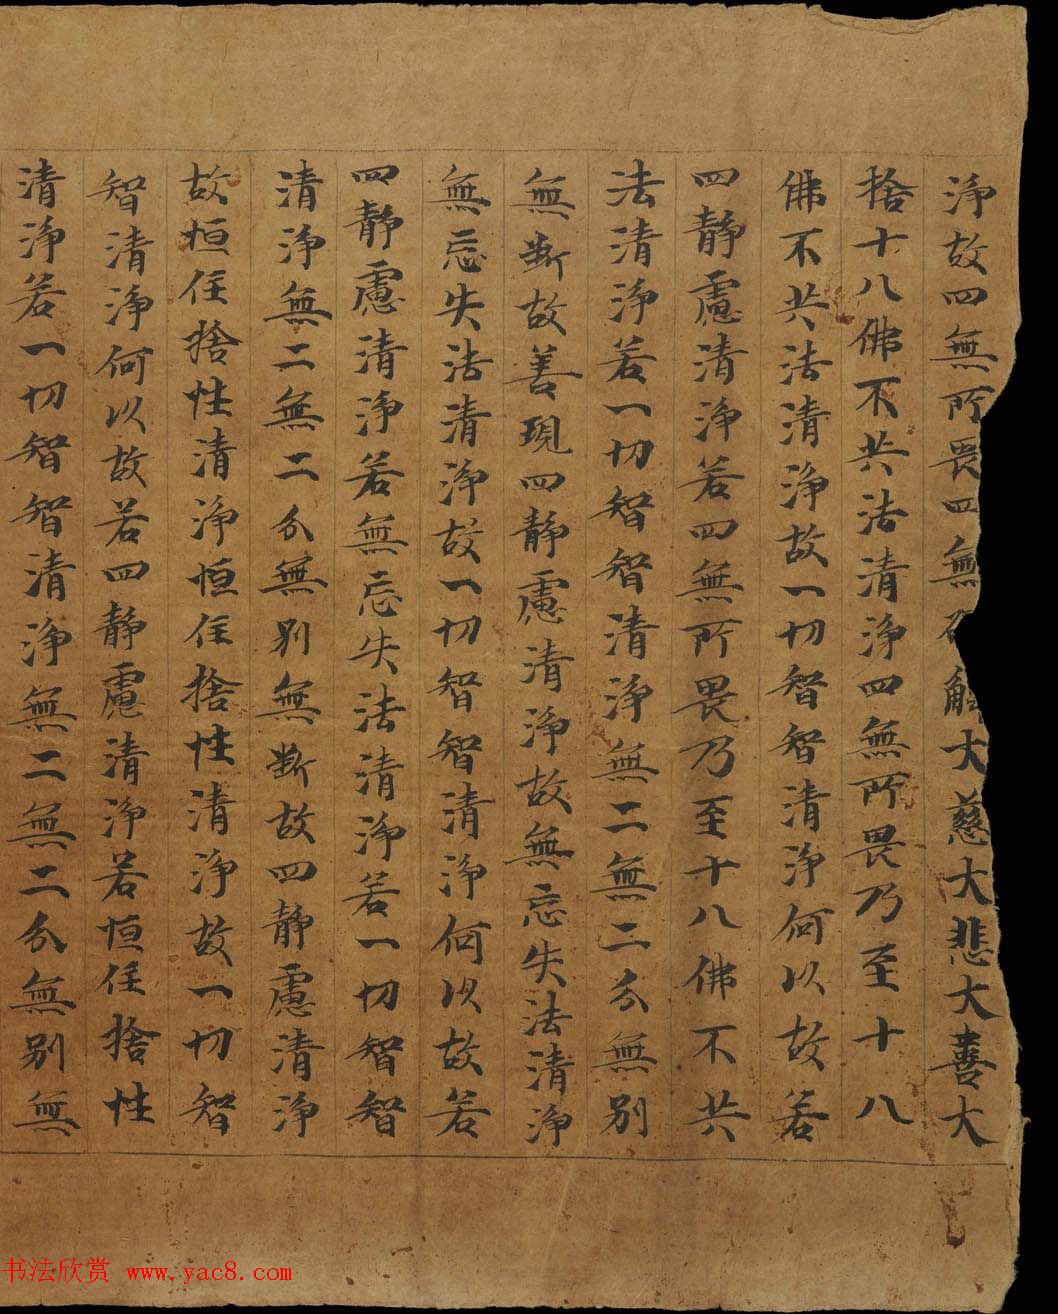 浄故四無所畏四無解大慈大悲大喜大
捨十八佛不共法清浄四無所畏乃至十八
佛不共法清浄故一切智智清浄何以故若
四静慮清浄若四無所畏乃至十八佛不共
法清浄若一切智智清浄無二無二分無别
無断故善現四静慮清浄故無忘失法清浄
無忘失法清浄故一切智智清浄何以故若
四静慮清浄若無忘失法清浄若一切智智
清浄無二無二分無别無断故四静慮清浄
故恒住捨性清浄恒住捨性清浄故一切智
智清浄何以故若四静慮清浄若恒住捨性
清浄若一切智智清浄無二無二分無别無
书法欣赏 www.yac8.com